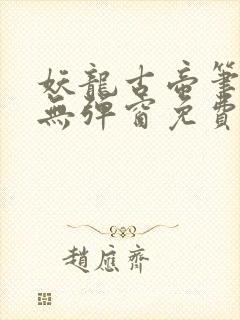 妖龍古帝筆
無彈窗免費
趙應齊